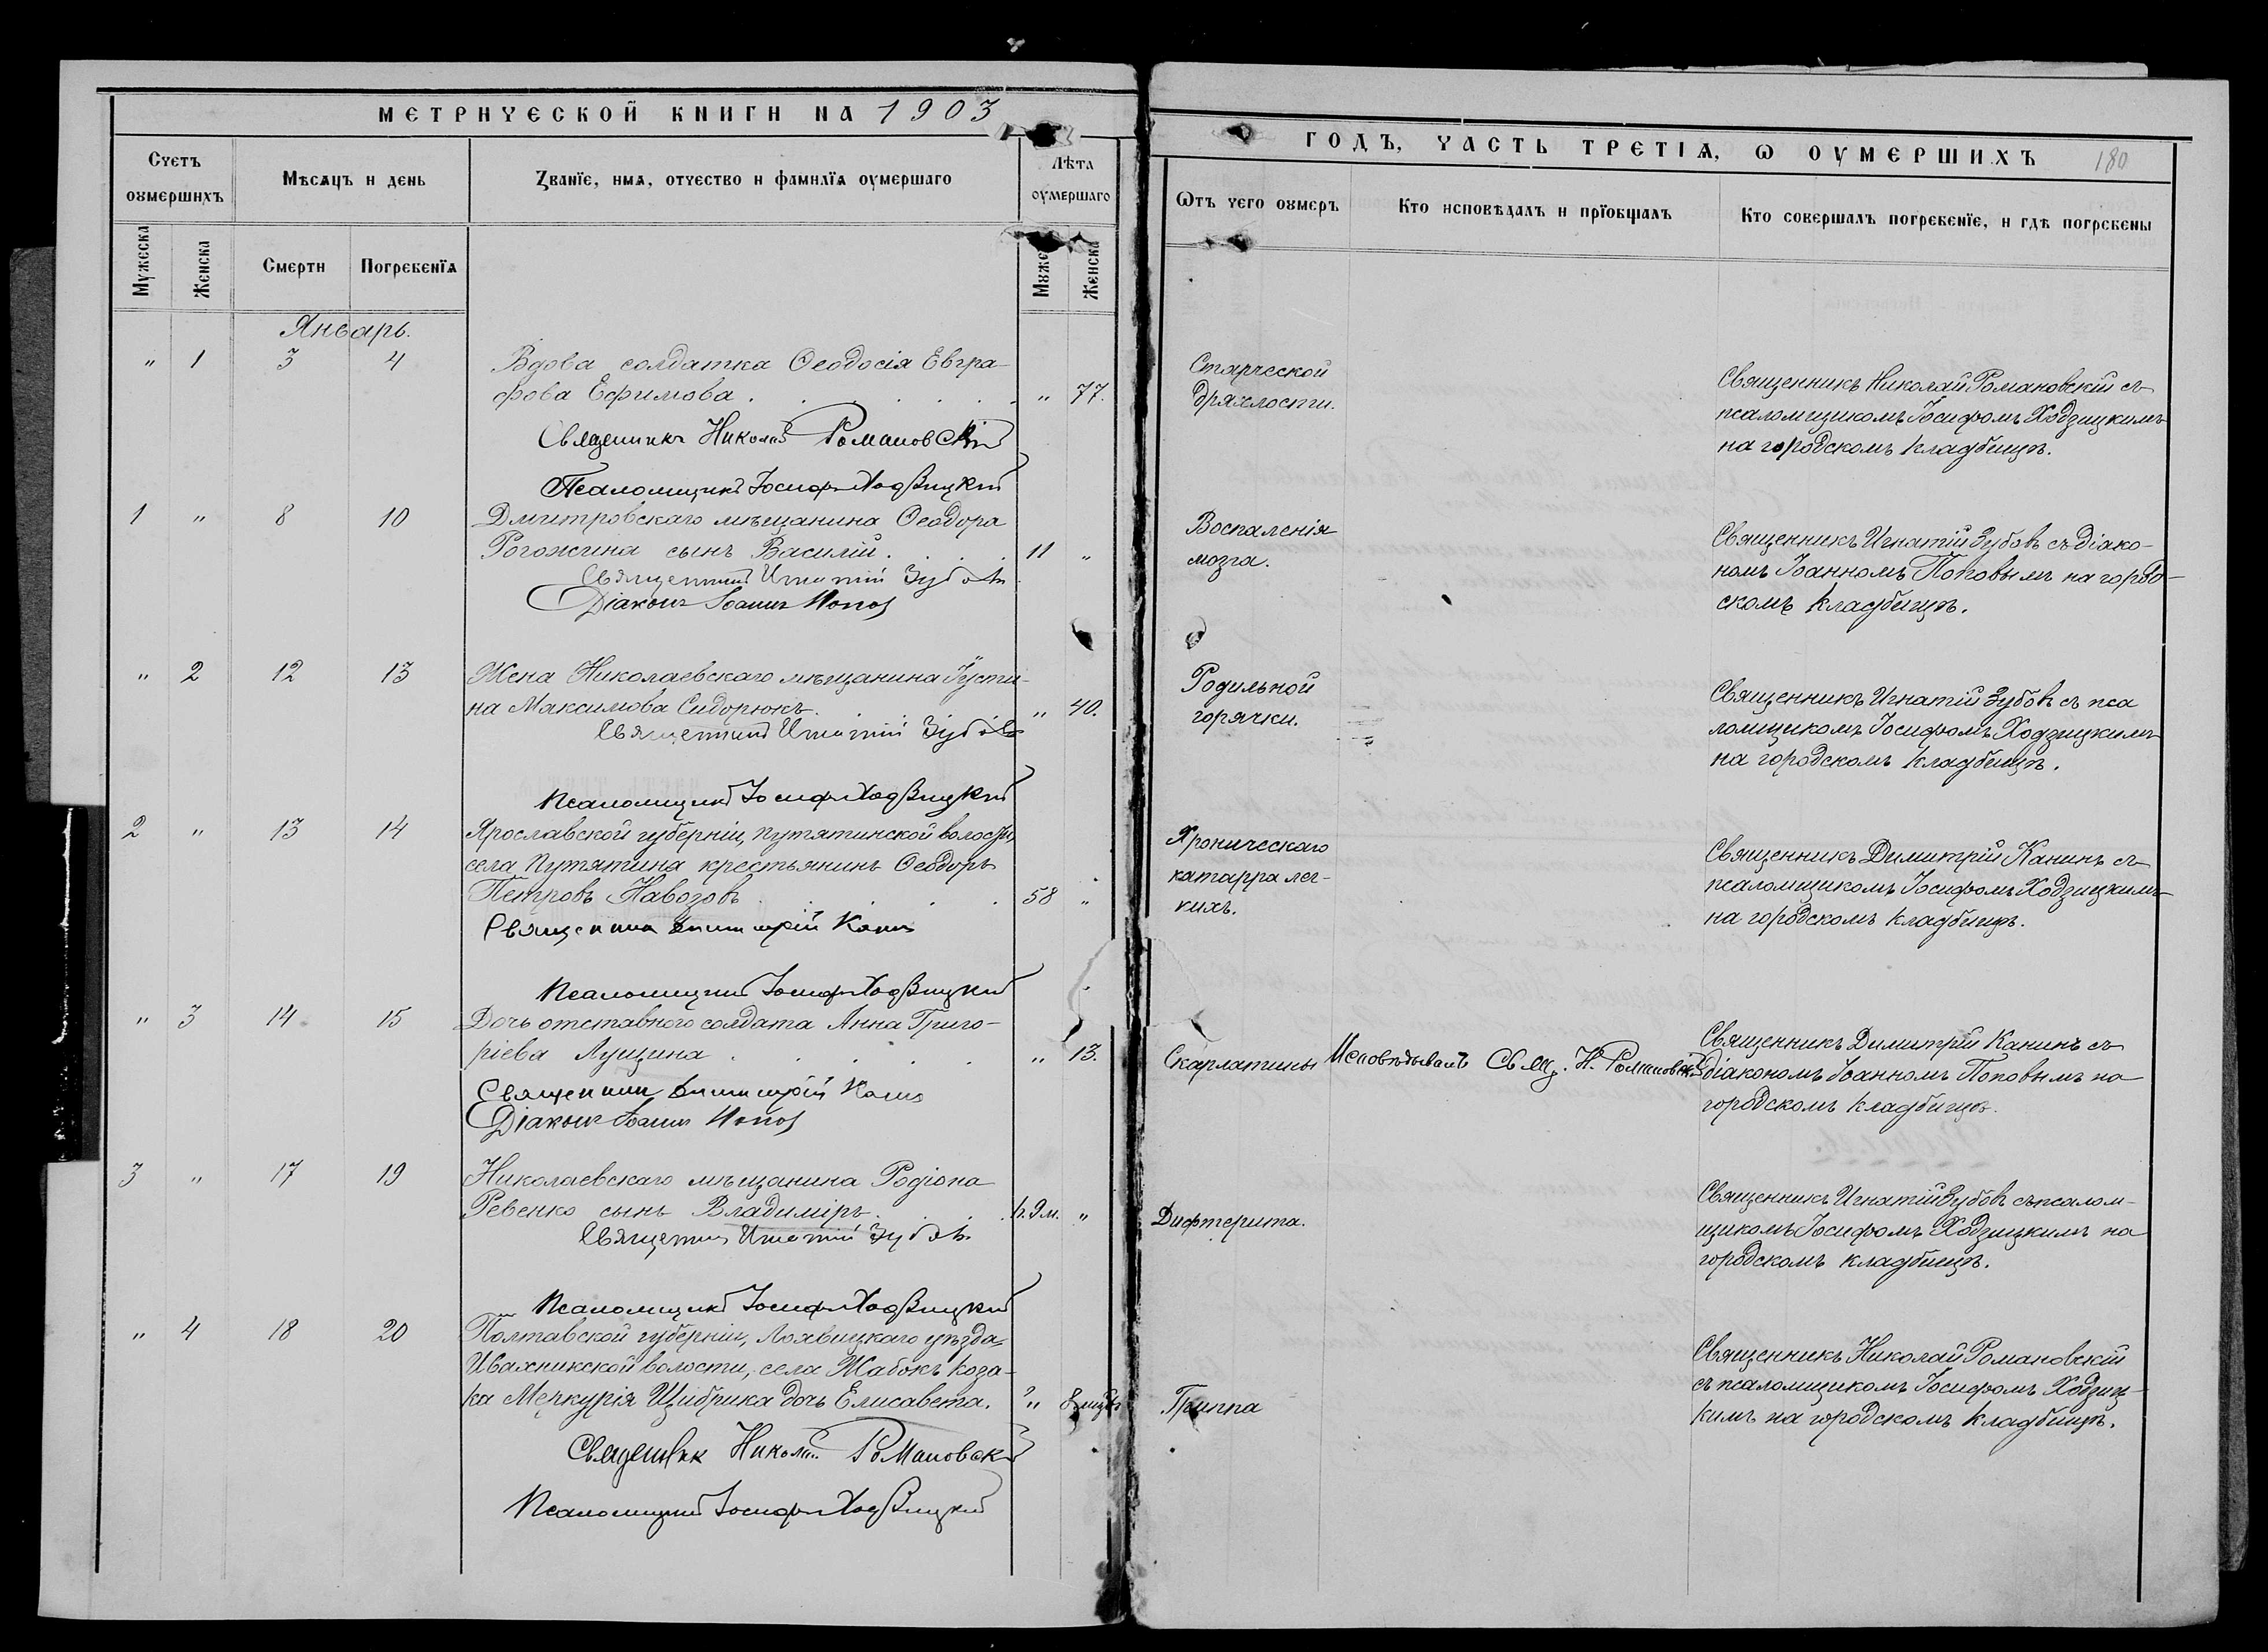 МЕТРИЧЕСКОЙ КНИГИ НА 1903
Счетъ оумершихъ
Мѣсяцъ и день
Званїе, имя, отчество и фамилїя оумершаго
Лѣта оумершаго
Мужеска
Женска
Смерти
Погребенїя
Муже
Женска
Январь.
" 1 3 4 Вдова солдатка Ѳеодосія Евгра-
фова Ефимова . . . . . . . " 77.
Священникъ Николай Романовскій
Псаломщикъ Іосифъ Ходзицкій
1 " 8 10 Дмитровскаго мѣщанина Ѳеодора
Рогожина сынъ Василій. . . . 11 "
Священникъ Игнатій Зубовъ
Діаконъ Іоаннъ Поповъ
" 2 12 13 Жена Николаевскаго мѣщанина Іусти-
на Максимова Сидорюкъ. . " 40.
Священникъ Игнатій Зубовъ
Псаломщикъ Іосифъ Ходзицкій
2 " 13 14 Ярославской губерніи, Путятинской волости,
села Путятина крестьянинъ Ѳеодоръ
Петровъ Навозовъ . . . . 58 "
Священникъ Димитрій Канинъ
Псаломщикъ Іосифъ Ходзицкій
" 3 14 15 Дочь отставного солдата Анна Григо-
ріева Лущина . . . . " 13.
Священникъ Димитрій Канинъ
Діаконъ Іоаннъ Поповъ
3 " 17 19 Николаевскаго мѣщанина Родіона
Ревенко сынъ Владиміръ. . . 9 м. "
Священникъ Игнатій Зубовъ
Псаломщикъ Іосифъ Ходзицкій
" 4 18 20 Полтавской губерніи, Лохвицкаго уѣзда,
Ивахникской волости, села Жабокъ коза-
ка Меркурія Щибрика дочь Елисавета. "
Священникъ Николай Романовскій
Псаломщикъ Іосифъ Ходзицкій
ГОДЪ, ЧАСТЬ ТРЕТІЯ, Ѡ ОУМЕРШИХЪ 180
Ѿтъ чего оумеръ
Кто исповѣдалъ и прїобщалъ
Кто совершалъ погребенїе, и гдѣ погребены
Старческой
дряхлости.
Священникъ Николай Романовскій съ
псаломщикомъ Іосифомъ Ходзицкимъ
на городскомъ кладбищѣ.
Воспаленія
мозга.
Священникъ Игнатій Зубовъ съ діако-
номъ Іоанномъ Поповымъ на город-
скомъ кладбищѣ.
Родильной
горячки.
Священникъ Игнатій Зубовъ съ пса
ломщикомъ Іосифомъ Ходзицкимъ
на городскомъ кладбищѣ.
Хроническаго
катарра лег-
кихъ.
Священникъ Димитрій Канинъ съ
псаломщикомъ Іосифомъ Ходзицкимъ
на городскомъ кладбищѣ.
Скарлатины
Исповѣдывалъ Свящ. Н. Романовскій
Священникъ Димитрій Канинъ съ
діакономъ Іоанномъ Поповымъ на
городскомъ кладбищѣ.
Дифтерита.
Священникъ Игнатій Зубовъ съ псалом-
щикомъ Іосифомъ Ходзицкимъ на
городскомъ кладбищѣ.
Гриппа
Священникъ Николай Романовскій
съ псаломщикомъ Іосифомъ Ходзиц-
кимъ на городскомъ кладбищѣ.